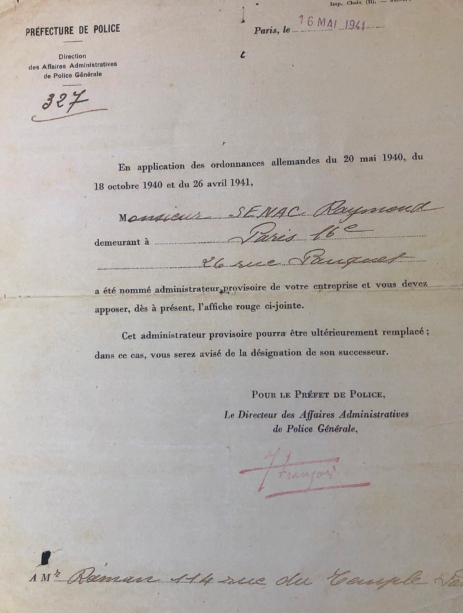 Imp. Chaix (B).
PRÉFECTURE DE POLICE
Paris, le 16 MAI 1941
Direction
des Affaires Administratives
de Police Générale
327
En application des ordonnances allemandes du 20 mai 1940, du
18 octobre 1940 et du 26 avril 1941,
Monsieur SENAC Raymond
demeurant à Paris 16e
26 rue Pauquet
a été nommé administrateur provisoire de votre entreprise et vous devez
apposer, dès à présent, l'affiche rouge ci-jointe.
Cet administrateur provisoire pourra être ultérieurement remplacé ;
dans ce cas, vous serez avisé de la désignation de son successeur.
POUR LE PRÉFET DE POLICE,
Le Directeur des Affaires Administratives
de Police Générale,
François
A Mr Raman 114 rue du Temple